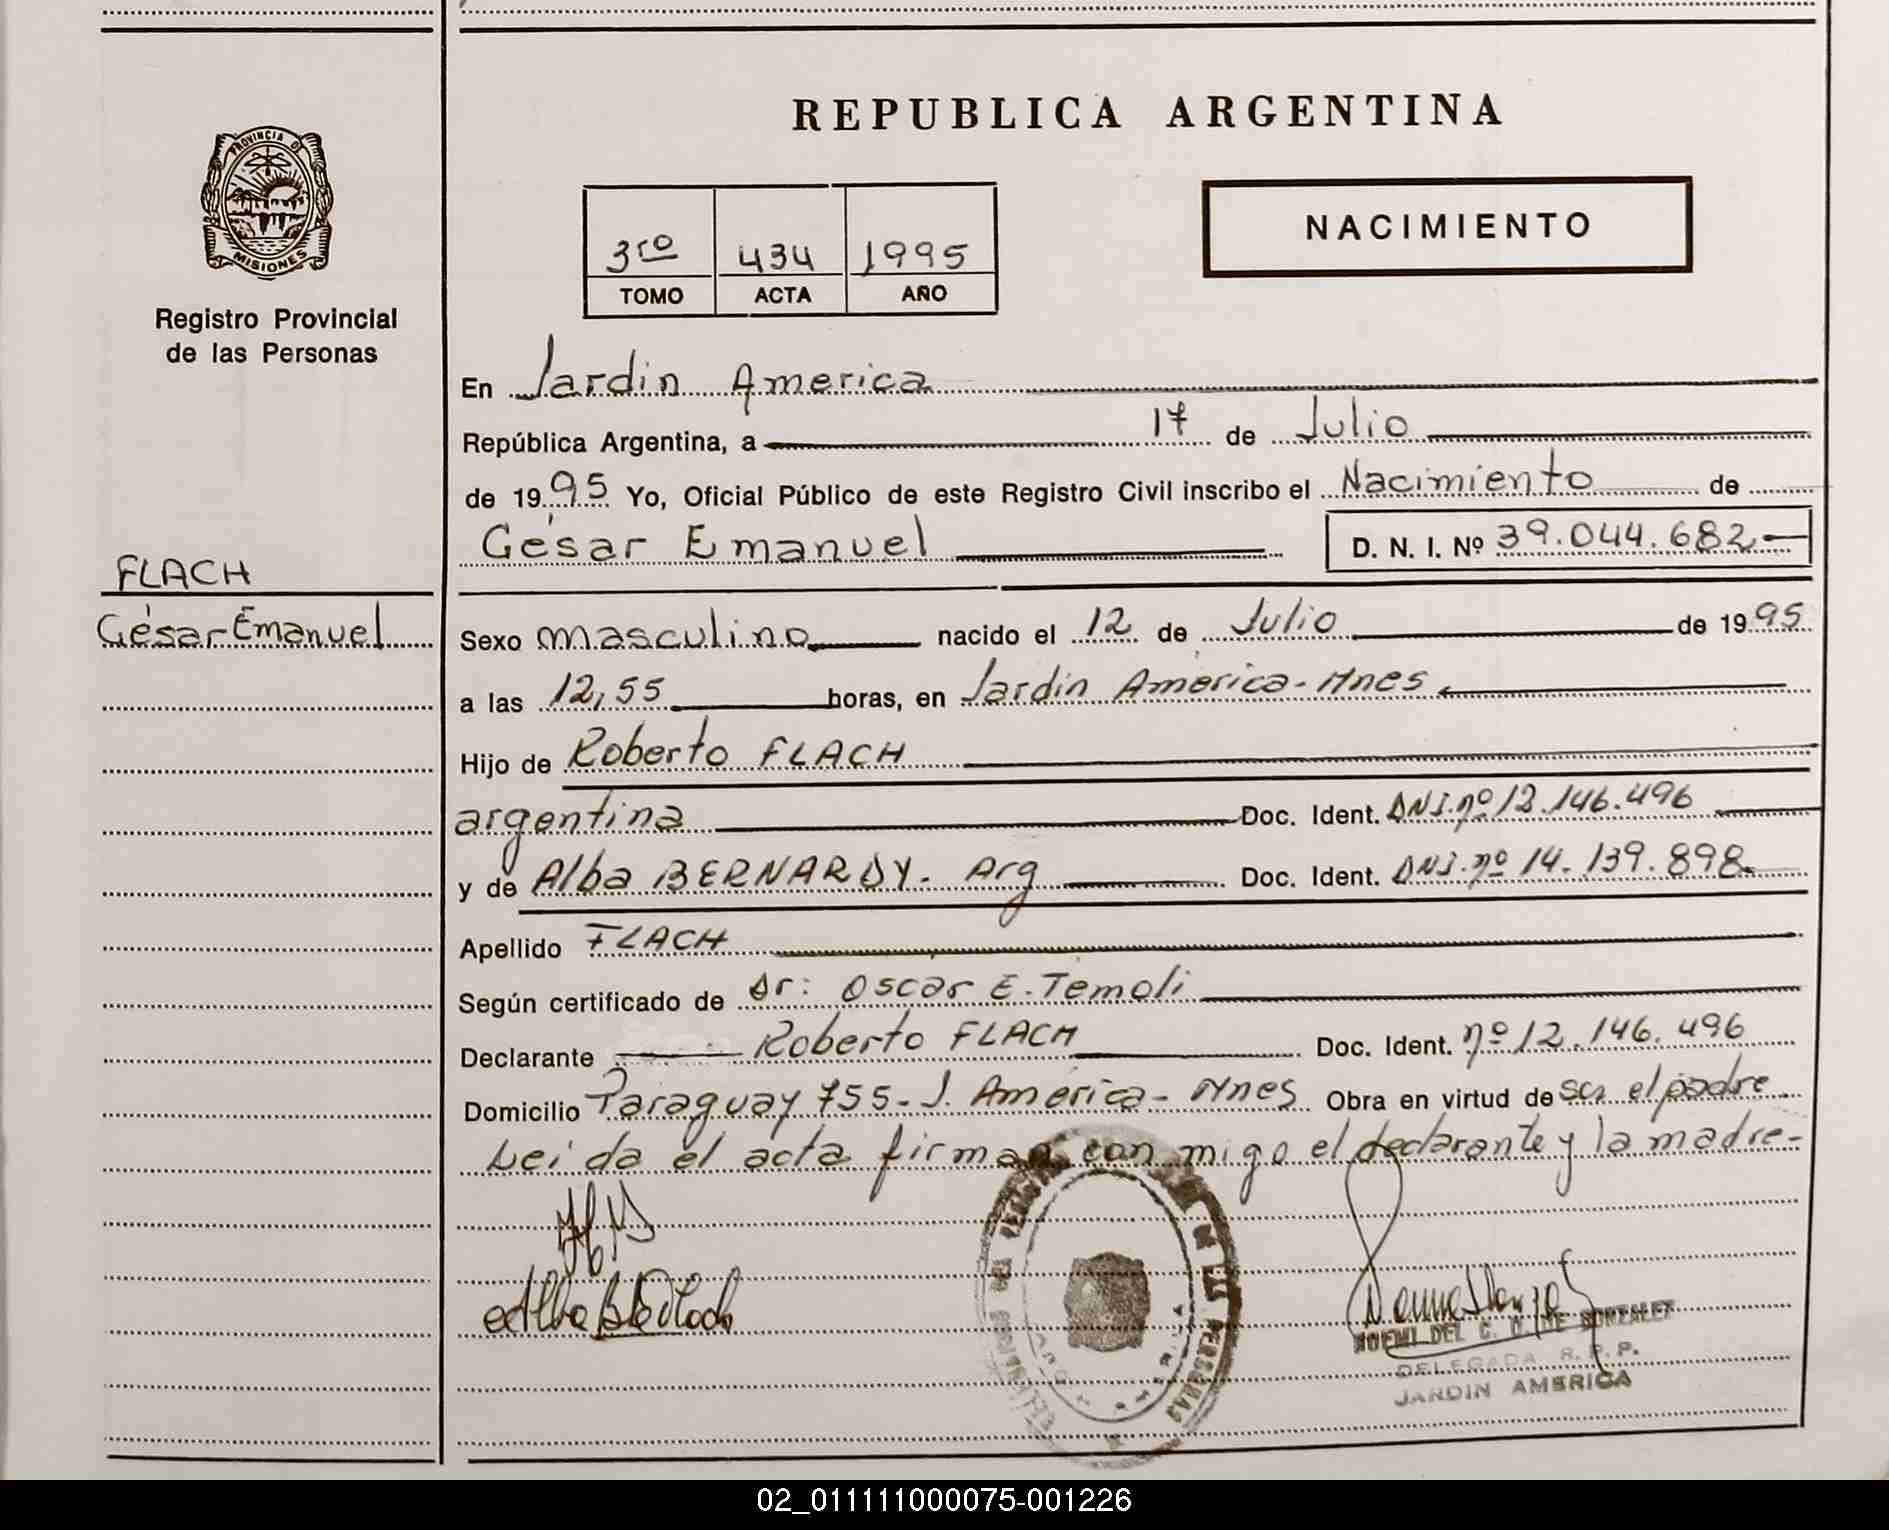 REPUBLICA ARGENTINA
PROVINCIA DE
MISIONES
Registro Provincial
de las Personas
3ro 434 1995
TOMO ACTA AÑO
NACIMIENTO
En Jardin America
República Argentina, a 17 de Julio
de 1995 Yo, Oficial Público de este Registro Civil inscribo el Nacimiento de
César Emanuel D. N. I. Nº 39.044.682
FLACH
César Emanuel
Sexo masculino nacido el 12 de Julio de 1995
a las 12,55 horas, en Jardin America - Mnes
Hijo de Roberto FLACH
argentina Doc. Ident. DNI. nº 12.146.496
y de Alba BERNARDY. Arg Doc. Ident. DNI. nº 14.139.898
Apellido FLACH
Según certificado de Dr: Oscar E. Temoli
Declarante Roberto FLACH Doc. Ident. nº 12.146.496
Domicilio Paraguay 755 - J. America - Mnes Obra en virtud de ser el padre
Leida el acta firman con migo el declarante y la madre-
NOEMI DEL C. O. DE GONZALEZ
DELEGADA R. P. P.
JARDIN AMERICA
02_011111000075-001226